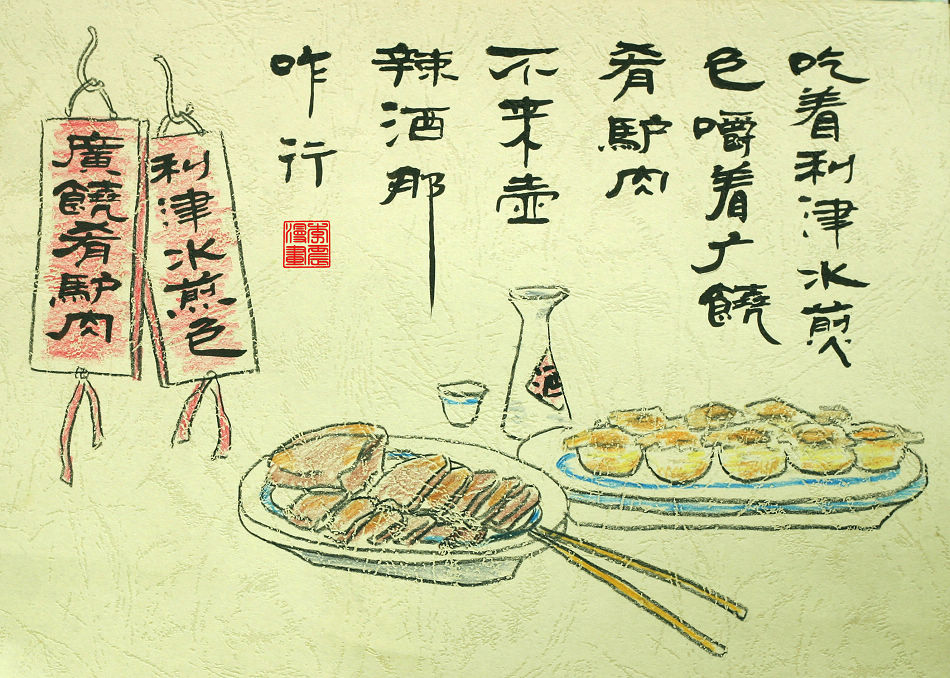 吃着利津水煎
包嚼着广饒
肴馿肉
不来壶
辣酒那
咋行
漫畫
利津水煎包
廣饒肴馿肉
酒